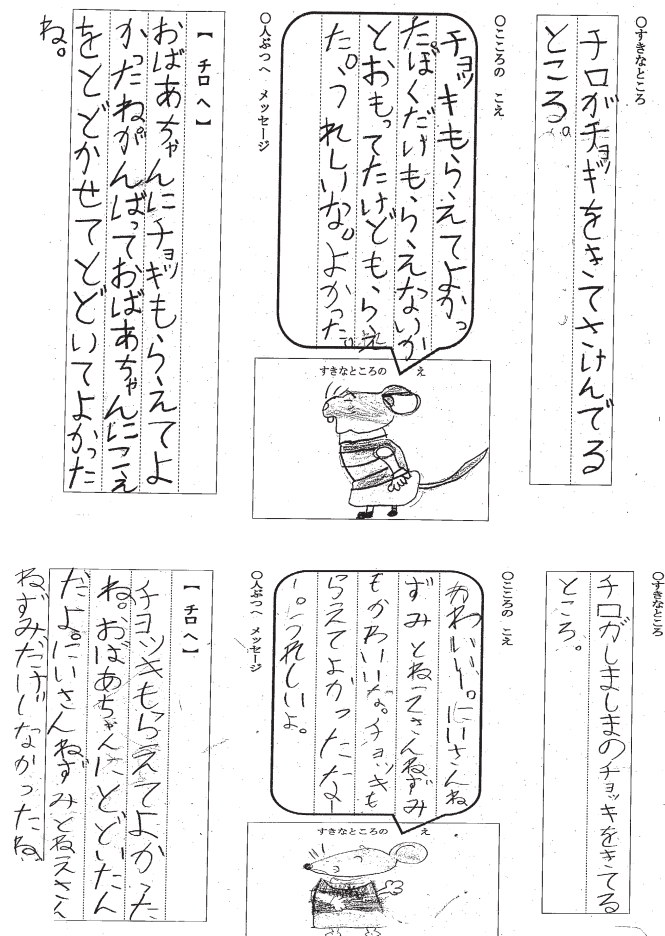 ○すきなところ
チロがチョッキをきてさけんでる
ところ。
○こころの こえ
チョッキもらえてよかっ
たぼくだけもらえないか
とおもってたけどもらえ
た。うれしいな。よかった。
すきなところの え
○人ぶつへ メッセージ
【 チロ へ 】
おばあちゃんにチョッキもらえてよ
かったねがんばっておばあちゃんにこえ
をとどかせてとどいてよかった
ね。
○すきなところ
チロがしましまのチョッキをきてる
ところ。
○こころの こえ
かわいい。にいさんね
ずみとねえさんねずみ
もかわいいな。チョッキも
らえてよかったなー
ー。うれしいよ。
すきなところの え
○人ぶつへ メッセージ
【 チロ へ 】
チョッキもらえてよかった
ね。おばあちゃんにとどいたん
だよ。にいさんねずみとねえさん
ねずみだけじなかったね